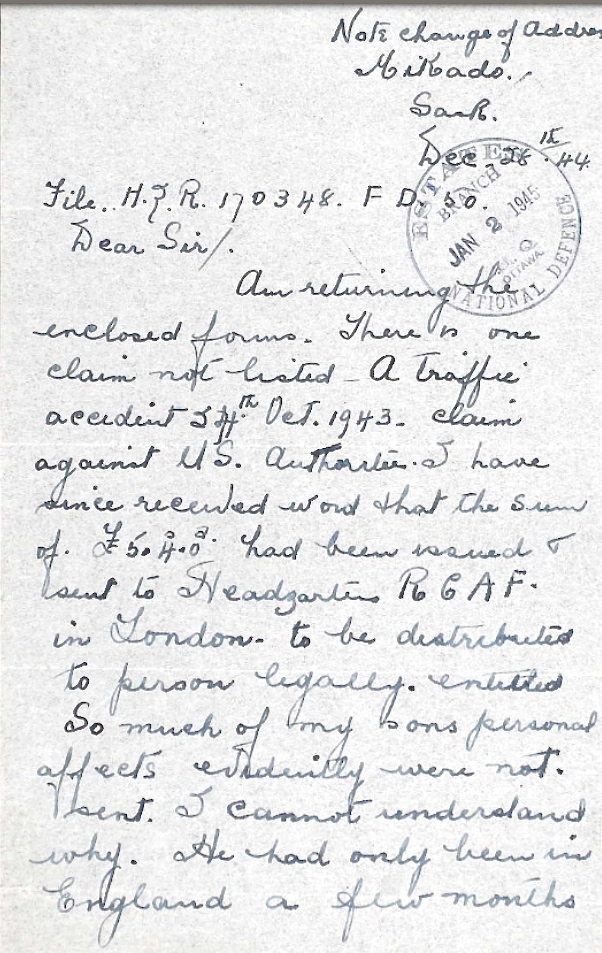 Note change of Addres
Mikado.
Sask.
Dec 28th. 44.
ESTATES
BRANCH
JAN 2 1945
OTTAWA
NATIONAL DEFENCE
File. H.Q.R. 170348. F D.
Dear Sir/.
Am returning the
enclosed forms. There is one
claim not listed - A traffic
accident Oct. 1943. claim
against U.S. Authorities. I have
since received word that the sum
of. £5. 4s. 0d. had been issued &
sent to Headqarters R C A F.
in London - to be distributed
to person legally. entitled
So much of my sons personal
affects evidently were not.
sent. I cannot understand
why. He had only been in
England a few months